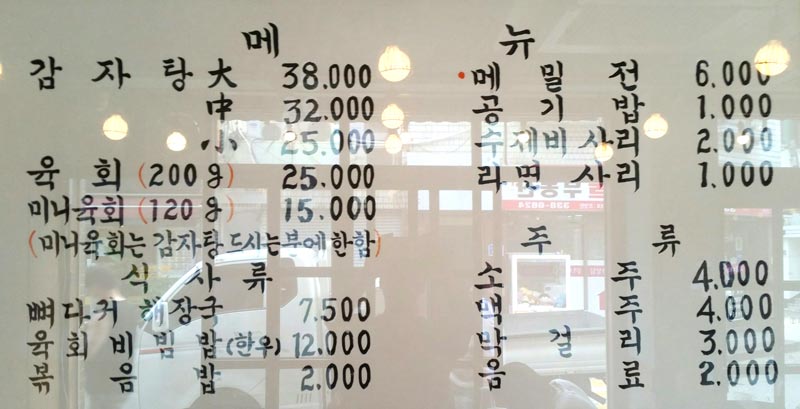 메 뉴
감 자 탕 大 38.000
中 32.000
小 25.000
육 회 (200g) 25.000
미니육회 (120g) 15.000
(미니육회는 감자탕 드시는분에 한함)
식 사 류
뼈다귀 해장국 7.500
육회비빔밥(한우) 12.000
볶 음 밥 2.000
• 메 밀 전 6.000
공 기 밥 1.000
수제비 사리 2.000
라면 사리 1.000
주 류
소 주 4.000
맥 주 4.000
막 걸 리 3.000
음 료 2.000